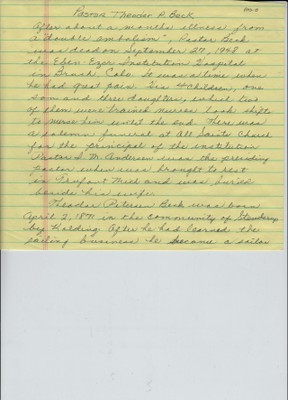 Page 2
Pastor Theodor P. Beck
After about a months illness from
a "double embolism", Pastor Beck
was dead on September 27, 1948 at
the Eben Ezer Institution Hospital
in Brush, Colo. It was a time when
he had great pain. His 4 children, one
son and three daughters, which two
of them were trained nurses took shifts
to nurse him until the end. There was
a solemn funeral at All Saints Church
for the principal of the institution
Pastor I. M. Andersen was the presiding
pastor when was brought to rest
in and was buried
beside his wife.
Theodor Petersen Beck was born
April 2, 1871 in the community of
by Kolding. After he had learned the
sailing business he became a sailor